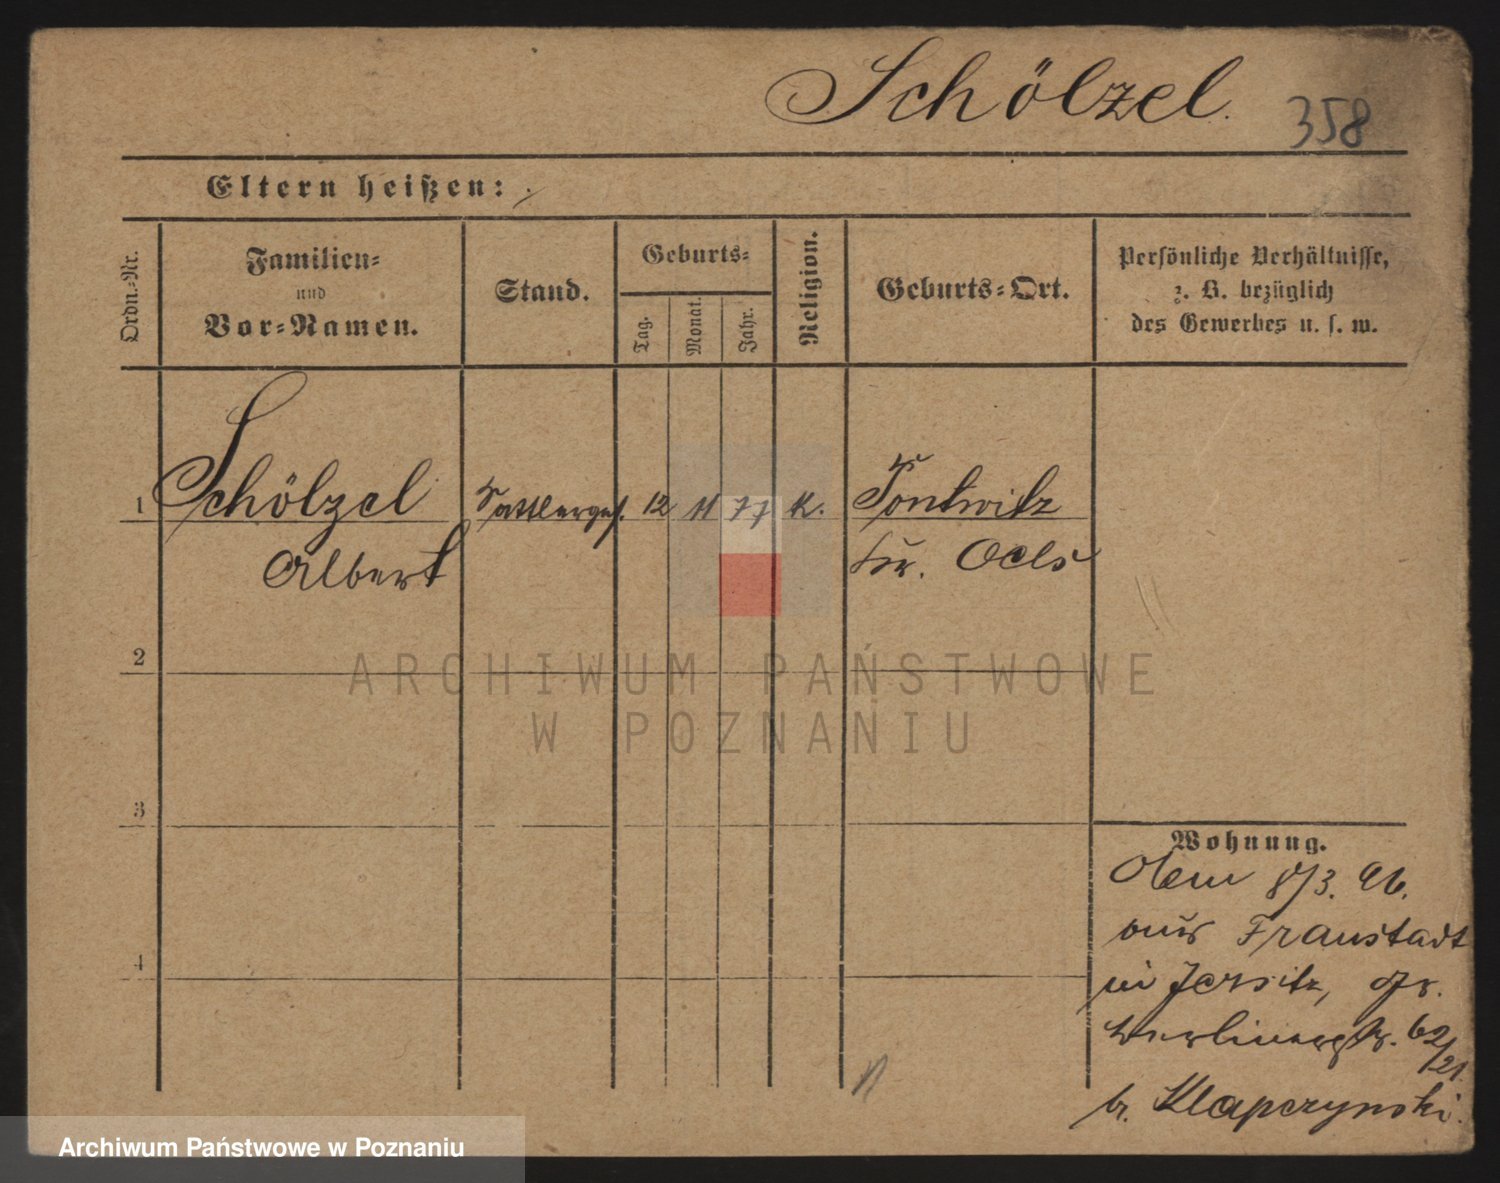 Schölzel.
358
Eltern heißen:
Ordn.-Nr.
Familien-
und
Vor-Namen.
Stand.
Geburts-
Tag.
Monat.
Jahr.
Religion.
Geburts-Ort.
Persönliche Verhältnisse,
z. B. bezüglich
des Gewerbes u. s. w.
1 Schölzel Sattlerges. 12 11 77 K. Pontwitz
Albert Kr. Oels
2
ARCHIWUM PAŃSTWOWE
W POZNANIU
3
Wohnung.
8/3. 96.
aus Fraustadt
in Jersitz, Gr.
Berlinerstr. 62/21.
b. Klapczynski.
4
Archiwum Państwowe w Poznaniu